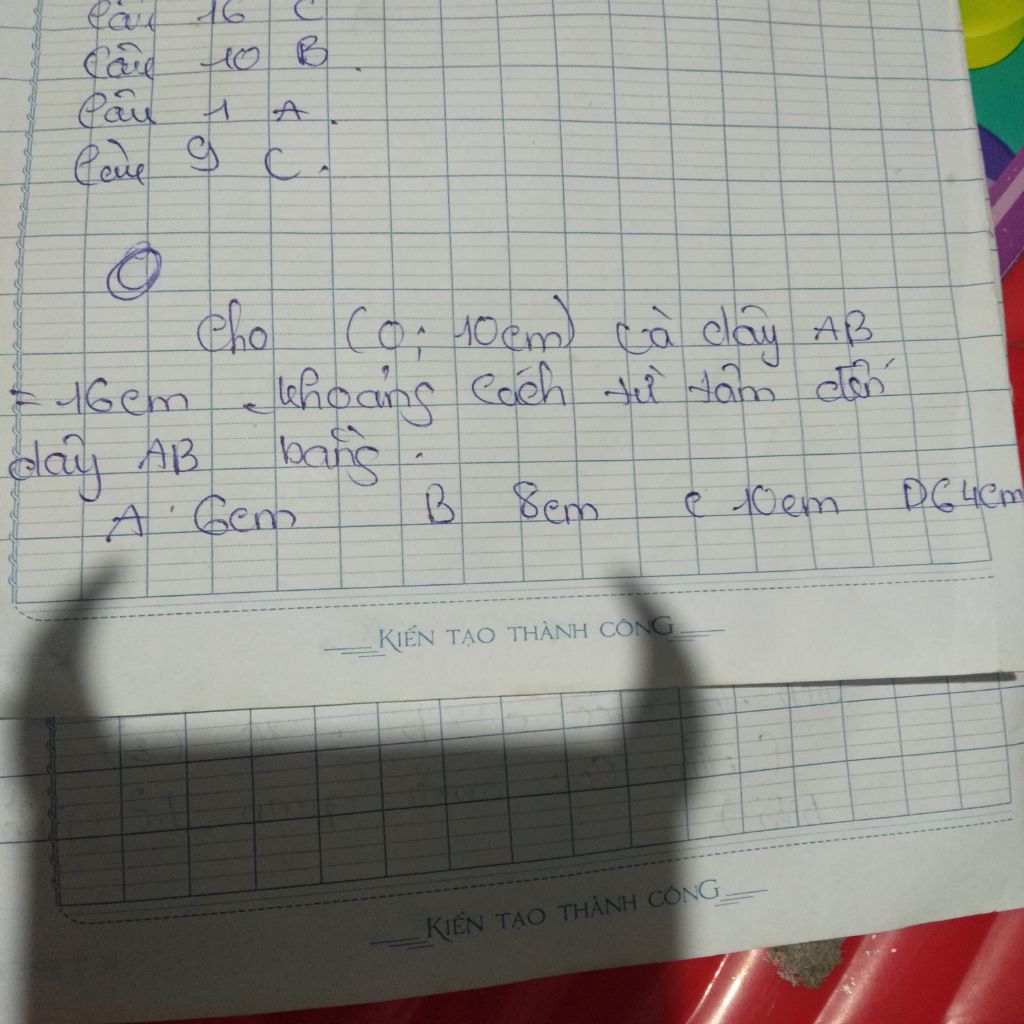 Câu 16 C
Câu 10 B.
Câu 1 A.
Câu 9 C.
Cho (O; 10cm) Cà dây AB
= 16cm. khoảng cách từ tâm đến
dây AB bằng.
A. 6cm B 8cm C 10cm D 64cm
KIẾN TẠO THÀNH CÔNG
KIẾN TẠO THÀNH CÔNG